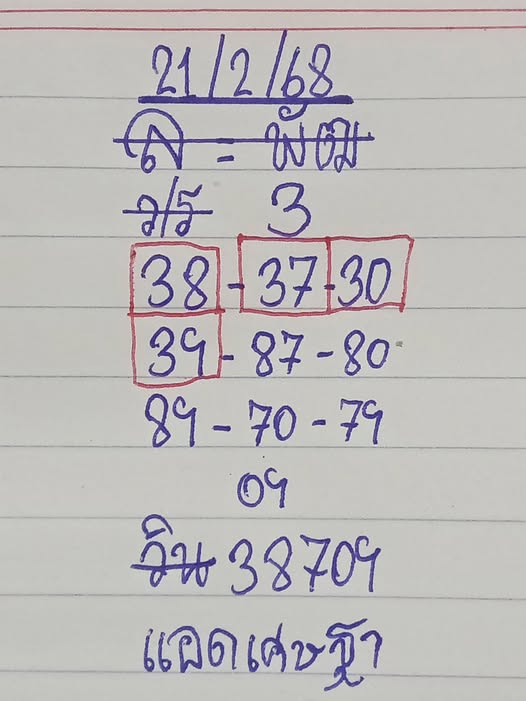 21/2/68
ล = พัฒ
ว/ร 3
38 - 37 - 30
39 - 87 - 80
89 - 70 - 79
09
วิน 38709
แอดเศษฐา